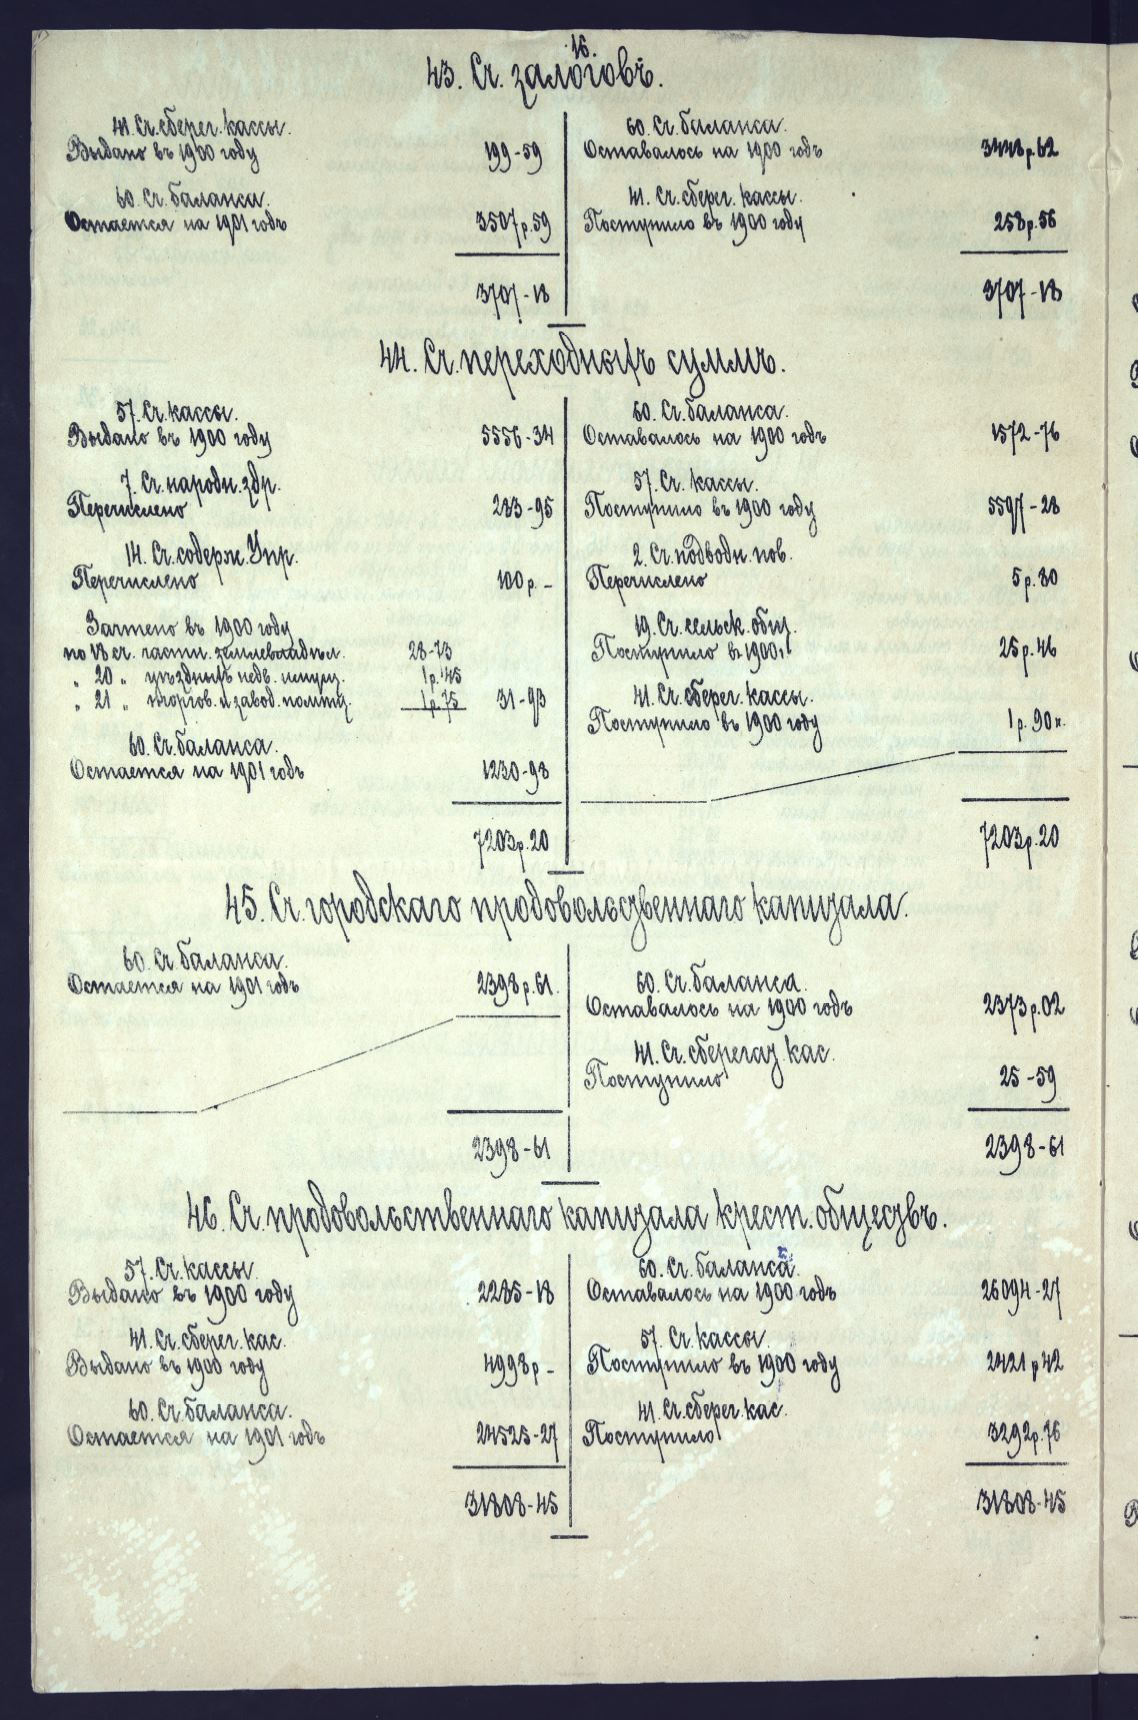 16.
43. Сч. залоговъ.
41. Сч. сберег. кассы.
Выдано въ 1900 году 199-59
60. Сч. баланса.
Остается на 1901 годъ 3507р.59
3707-18
60. Сч. баланса.
Оставалось на 1900 годъ 3448р.62
41. Сч. сберег. кассы.
Поступило въ 1900 году 258р.56
3707-18
44. Сч. переходныхъ суммъ.
57. Сч. кассы.
Выдано въ 1900 году 5556-34
7. Сч. народн. здр.
Перечислено 283-95
14. Сч. содерж. Упр.
Перечислено 100р.-
Зачтено въ 1900 году
по 18 сч. частн. землевладѣл. 28-73
" 20 " уѣздныхъ недв. имущ. 1р.45
" 21 " торгов. и завод. помѣщ. 1р.75 31-93
60. Сч. баланса.
Остается на 1901 годъ 1230-98
7203р.20
60. Сч. баланса.
Оставалось на 1900 годъ 1572-76
57. Сч. кассы.
Поступило въ 1900 году 5597-28
2. Сч. подводн. пов.
Перечислено 5р.80
19. Сч. сельск. общ.
Поступило в 1900 г. 25р.46
41. Сч. сберег. кассы.
Поступило въ 1900 году 1р.90к.
7203р.20
45. Сч. городскаго продовольственнаго капитала.
60. Сч. баланса.
Остается на 1901 годъ 2398р.61.
2398-61
60. Сч. баланса.
Оставалось на 1900 годъ 2373р.02
41. Сч. сберегат. кас.
Поступило 25-59
2398-61
46. Сч. продовольственнаго капитала крест. обществъ.
57. Сч. кассы.
Выдано въ 1900 году 2285-18
41. Сч. сберег. кас.
Выдано въ 1900 году 4998р-
60. Сч. баланса.
Остается на 1901 годъ 24525-27
31808-45
60. Сч. баланса.
Оставалось на 1900 годъ 26094-27
57. Сч. кассы.
Поступило въ 1900 году 2421р42
41. Сч. сберег. кас.
Поступило 3292р.76
31808-45